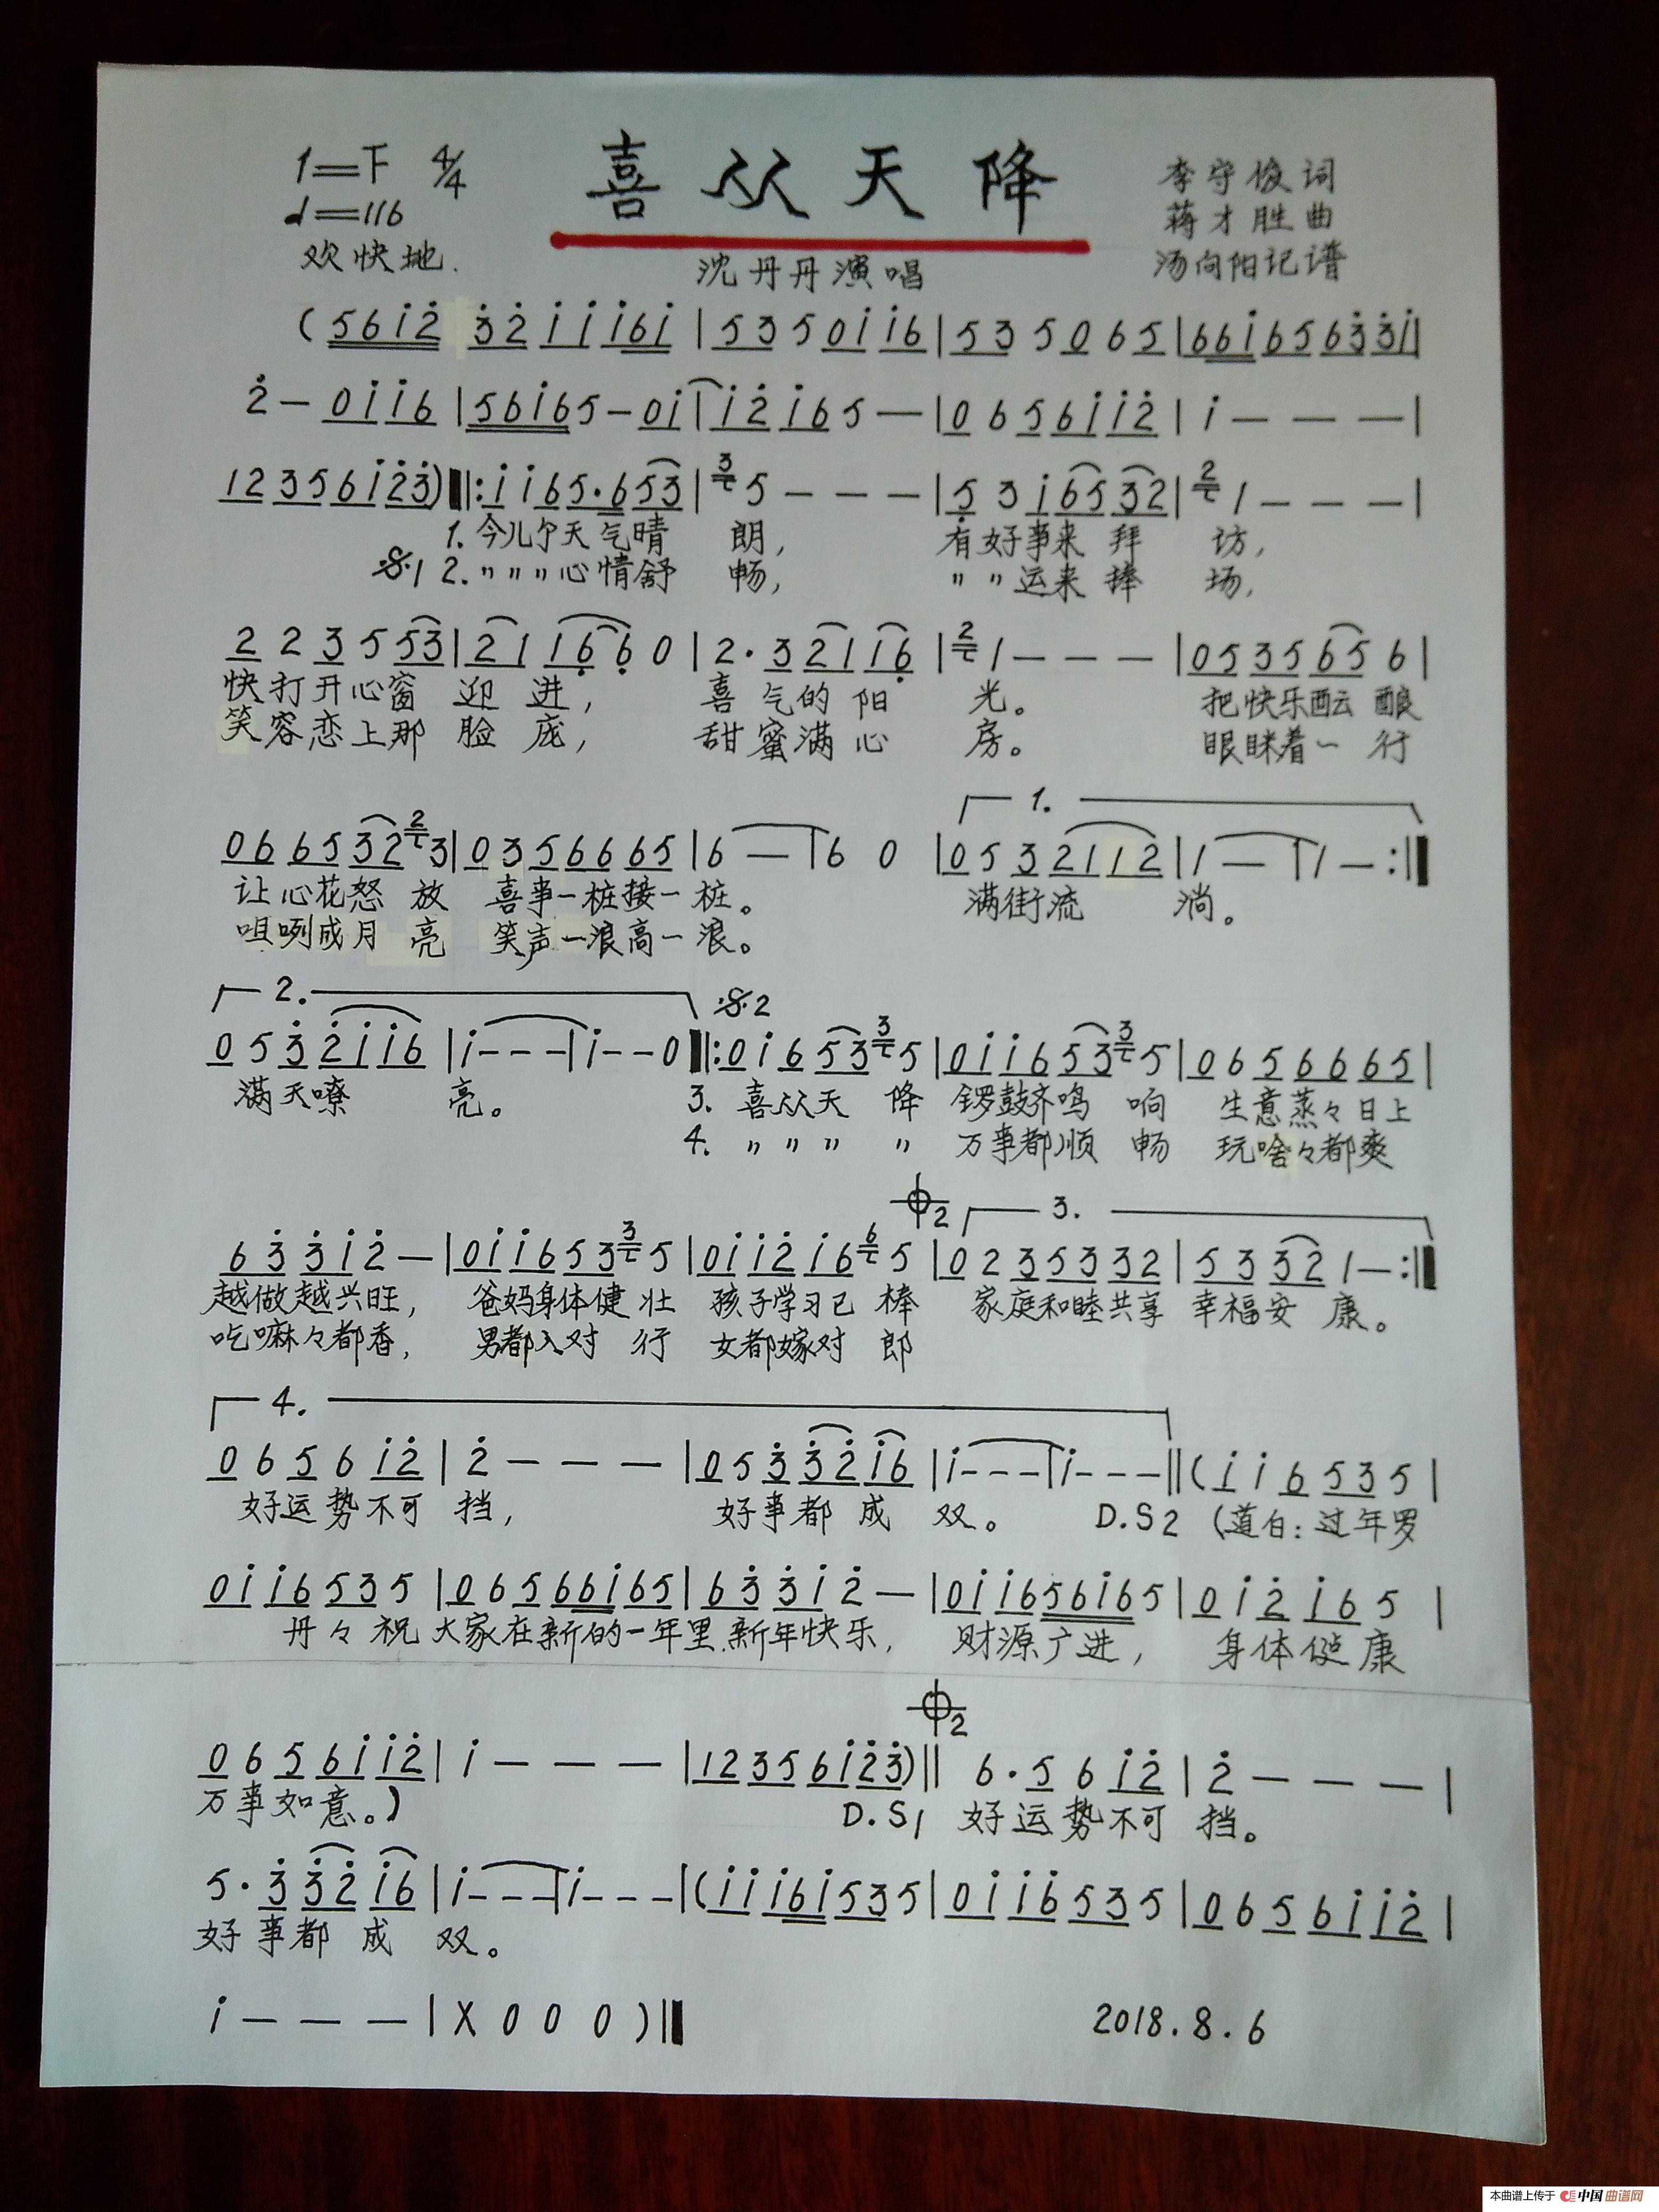 1=F 4/4 喜从天降 李守俊词
♩=116 蒋才胜曲
欢快地. 沈丹丹演唱 汤向阳记谱
(5 6 i 2̇ 3̇ 2̇ i i i 6 i | 5 3 5 0 i i 6 | 5 3 5 0 6 5 | 6 6 i 6 5 6 3̇ 3̇ i |
2̇ — 0 i i 6 | 5 6 i 6 5 — 0 i | i 2̇ i 6 5 — | 0 6 5 6 i i 2̇ | i — — — |
1 2 3 5 6 i 2̇ 3̇) ‖: i i 6 5 · 6 5 3 | 3 5 — — — | 5̣ 3 i 6 5 3 2 | 2 1 — — — |
1. 今儿个天气晴 朗, 有好事来 拜 访,
𝄋1 2. 〃〃〃心情舒 畅, 〃〃运来 捧 场,
2 2 3 5 5 3 | 2 1 1 6̣ 6̣ 0 | 2 · 3 2 1 1 6̣ | 2 1 — — — | 0 5 3 5 6 5 6 |
快打开心窗 迎 进, 喜 气的 阳 光。 把快乐酝 酿
笑容恋上那 脸 庞, 甜 蜜满 心 房。 眼眯着一 行
1.
0 6 6 5 3 2 2 3 | 0 3 5 6 6 6 5 | 6 — | 6 0 | 0 5 3 2 1 1 2 | 1 — | 1 — :‖
让心花怒 放 喜事一桩接一桩。 满街流 淌。
咀咧成月 亮 笑声一浪高一浪。
2. 𝄋2
0 5 3̇ 2̇ i i 6 | i - - - | i - - 0 ‖: 0 i 6 5 3 3 5 | 0 i i 6 5 3 3 5 | 0 6 5 6 6 6 5 |
满天嘹 亮。 3. 喜从天 降 锣鼓齐鸣 响 生意蒸々日上
4. 〃〃〃 〃 万事都顺 畅 玩啥々都爽
𝄌2 3.
6 3̇ 3̇ i 2̇ — | 0 i i 6 5 3 3 5 | 0 i i 2̇ i 6 6 5 | 0 2 3 5 3 3 2 | 5 3 3 2 1 — :‖
越做越兴旺, 爸妈身体健 壮 孩子学习己 棒 家庭和睦共享 幸福安 康。
吃嘛々都香, 男都入对 行 女都嫁对 郎
4.
0 6 5 6 i 2̇ | 2̇ — — — | 0 5 3̇ 3̇ 2̇ i 6 | i - - - | i - - - ‖ (i i 6 5 3 5 |
好运势不可 挡, 好事都 成 双。 D.S2 (道白:过年罗
0 i i 6 5 3 5 | 0 6 5 6 6 i 6 5 | 6 3̇ 3̇ i 2̇ — | 0 i i 6 5 6 i 6 5 | 0 i 2̇ i 6 5 |
丹々 祝 大家在新的一年里.新年快乐, 财源广进, 身体健康
𝄌2
0 6 5 6 i i 2̇ | i — — — | 1 2 3 5 6 i 2̇ 3̇) ‖ 6 · 5 6 i 2̇ | 2̇ — — — |
万事如意。) D.S1 好运势不可 挡。
5 · 3̇ 3̇ 2̇ i 6 | i - - - | i - - - | (i i i 6 i 5 3 5 | 0 i i 6 5 3 5 | 0 6 5 6 i i 2̇ |
好 事都 成 双。
i — — — | X 0 0 0 ) ‖ 2018.8.6
本曲谱上传于 中国曲谱网